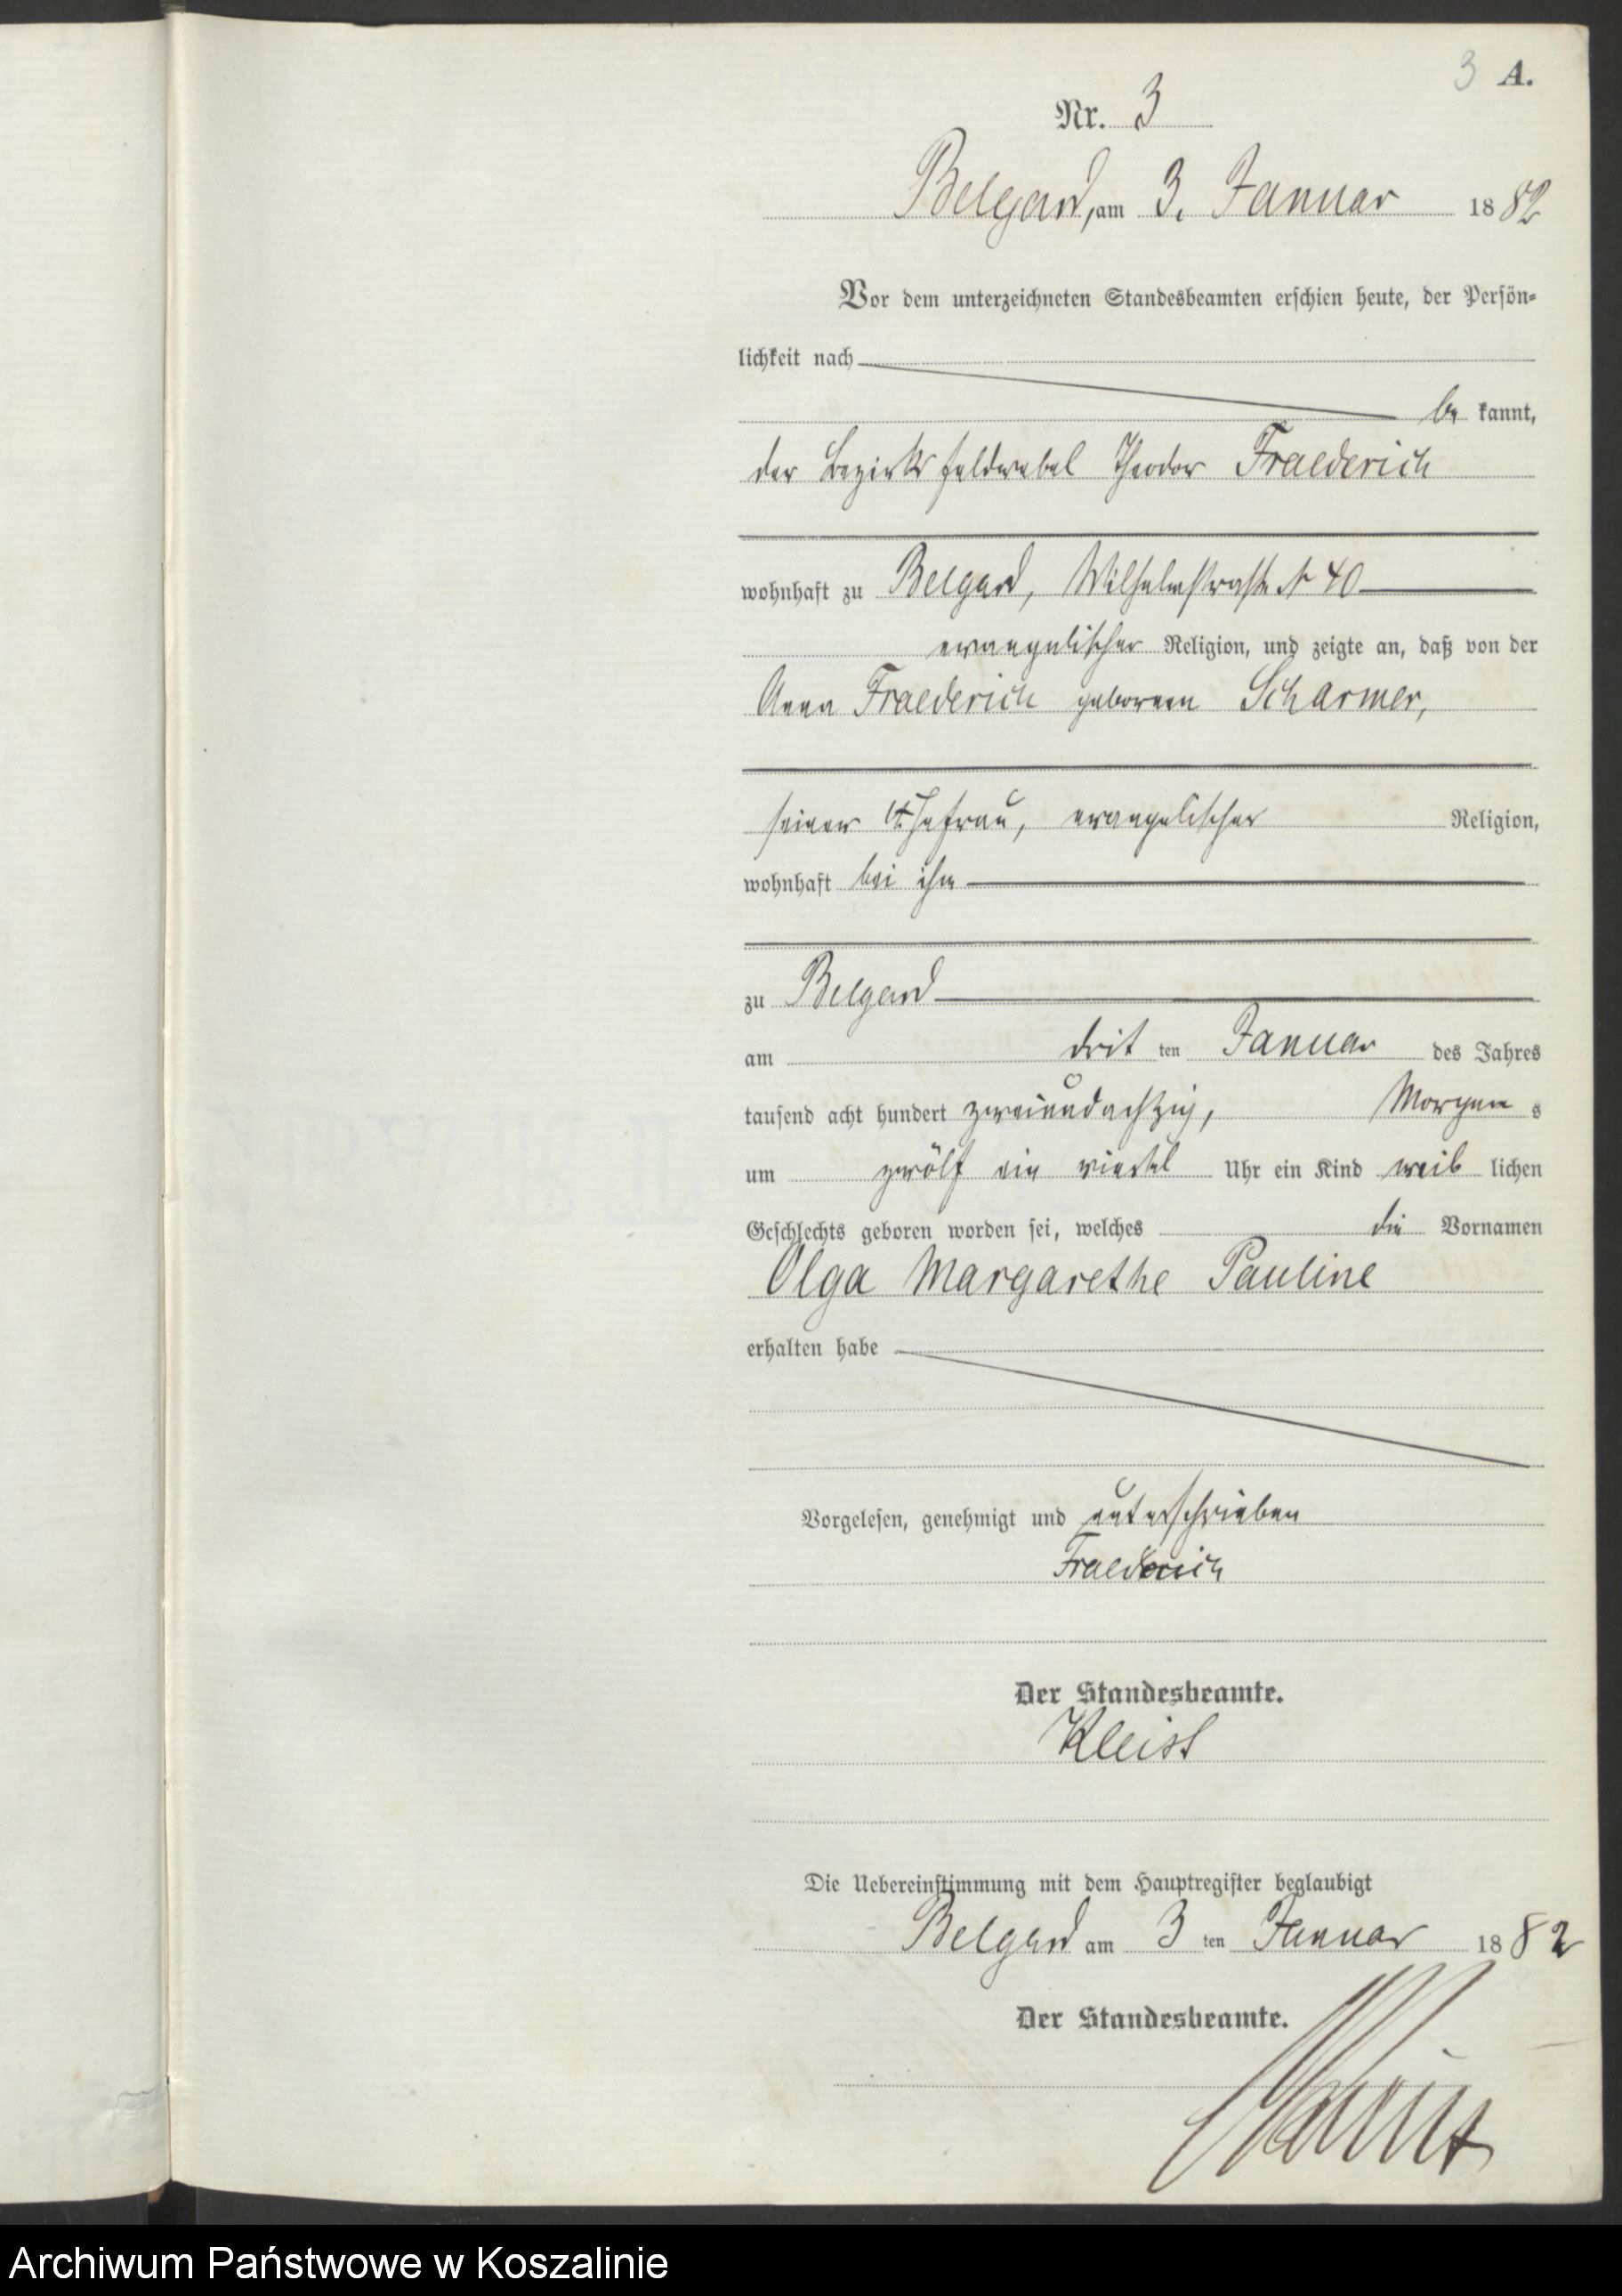 3 A.
Nr. 3
Belgard, am 3. Januar 1882
Vor dem unterzeichneten Standesbeamten erschien heute, der Persön-
lichkeit nach
be kannt,
der Bezirksfeldwebel Theodor Fraederich
wohnhaft zu Belgard, Wilhelmstraße № 40
evangelischer Religion, und zeigte an, daß von der
Anna Fraederich geborenen Scharmer,
seiner Ehefrau, evangelischer Religion,
wohnhaft bei ihm
zu Belgard
am dritten Januar des Jahres
tausend acht hundert zweiundachtzig, Morgens
um zwölf ein viertel Uhr ein Kind weiblichen
Geschlechts geboren worden sei, welches die Vornamen
Olga Margarethe Pauline
erhalten habe
Vorgelesen, genehmigt und unterschrieben
Fraederich
Der Standesbeamte.
Kleist
Die Uebereinstimmung mit dem Hauptregister beglaubigt
Belgard am 3ten Januar 1882
Der Standesbeamte.
Archiwum Państwowe w Koszalinie